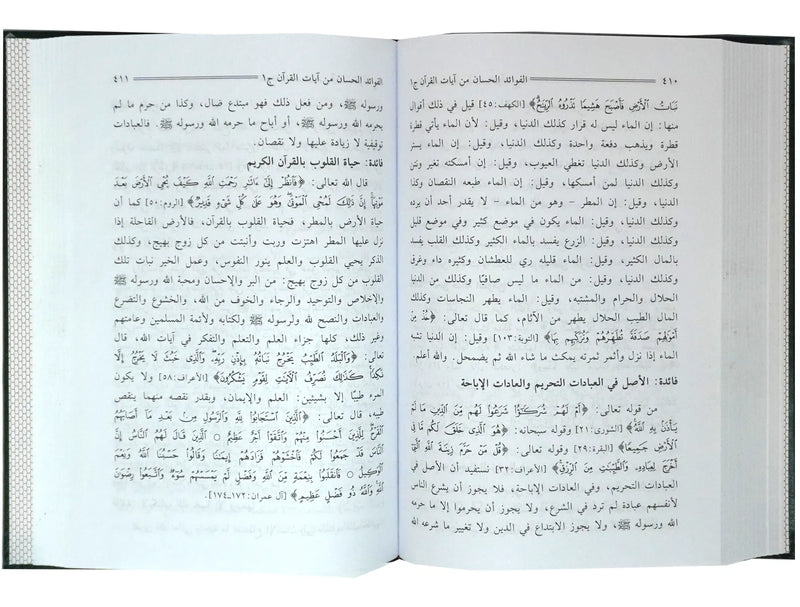 ٤١٠ الفوائد الحسان من آيات القرآن ج١
نَبَاتُ ٱلْأَرْضِ فَأَصْبَحَ هَشِيمًا تَذْرُوهُ ٱلرِّيَٰحُ﴾ [الكهف:٤٥] قيل في ذلك أقوال
منها: إن الماء ليس له قرار كذلك الدنيا، وقيل: لأن الماء يأتي قطرة
قطرة ويذهب دفعة واحدة وكذلك الدنيا، وقيل: إن الماء يستر
الأرض وكذلك الدنيا تغطي العيوب، وقيل: إن أمسكته تغير ونتن
وكذلك الدنيا لمن أمسكها، وقيل: إن الماء طبعه النقصان وكذا
الدنيا، وقيل: إن المطر – وهو من الماء – لا يقدر أحد أن يرده
وكذلك الدنيا، وقيل: إن الماء يكون في موضع كثير وفي موضع قليل
وكذلك الدنيا، وقيل: الزرع يفسد بالماء الكثير وكذلك القلب يفسد
بالمال الكثير، وقيل: الماء قليله ري للعطشان وكثيره داء وغرق
وكذلك الدنيا، وقيل: من الماء ما ليس صافيًا وكذلك من الدنيا
الحلال والحرام والمشتبه، وقيل: إن الماء يطهر النجاسات وكذلك
المال الطيب الحلال يطهر من الآثام، كما قال تعالى: ﴿خُذْ مِنْ
أَمْوَٰلِهِمْ صَدَقَةً تُطَهِّرُهُمْ وَتُزَكِّيهِم بِهَا﴾ [التوبة:١٠٣] وقيل: إن الدنيا تشبه
الماء إذا نزل وأثمر ثمرته يمكث ما شاء الله ثم يضمحل. والله أعلم.
فائدة: الأصل في العبادات التحريم والعادات الإباحة
من قوله تعالى: ﴿أَمْ لَهُمْ شُرَكَٰٓؤُا۟ شَرَعُوا۟ لَهُم مِّنَ ٱلدِّينِ مَا لَمْ
يَأْذَنۢ بِهِ ٱللَّهُ﴾ [الشورى:٢١] وقوله سبحانه: ﴿هُوَ ٱلَّذِى خَلَقَ لَكُم مَّا فِى
ٱلْأَرْضِ جَمِيعًا﴾ [البقرة:٢٩] وقوله تعالى: ﴿قُلْ مَنْ حَرَّمَ زِينَةَ ٱللَّهِ ٱلَّتِىٓ
أَخْرَجَ لِعِبَادِهِۦ وَٱلطَّيِّبَٰتِ مِنَ ٱلرِّزْقِ﴾ [الأعراف:٣٢] نستفيد أن الأصل في
العبادات التحريم، وفي العادات الإباحة، فلا يجوز أن يشرع الناس
لأنفسهم عبادة لم ترد في الشرع، ولا يجوز أن يحرموا إلا ما حرمه
الله ورسوله ﷺ، ولا يجوز الابتداع في الدين ولا تغيير ما شرعه الله
الفوائد الحسان من آيات القرآن ج١ ٤١١
ورسوله ﷺ، ومن فعل ذلك فهو مبتدع ضال، وكذا من حرم ما لم
يحرمه الله ورسوله ﷺ، أو أباح ما حرمه الله ورسوله ﷺ. فالعبادات
توقيفية لا زيادة عليها ولا نقصان.
فائدة: حياة القلوب بالقرآن الكريم
قال الله تعالى: ﴿فَٱنظُرْ إِلَىٰٓ ءَاثَٰرِ رَحْمَتِ ٱللَّهِ كَيْفَ يُحْىِ ٱلْأَرْضَ بَعْدَ
مَوْتِهَآ إِنَّ ذَٰلِكَ لَمُحْىِ ٱلْمَوْتَىٰ وَهُوَ عَلَىٰ كُلِّ شَىْءٍ قَدِيرٌ﴾ [الروم:٥٠] كما أن
حياة الأرض بالمطر، فحياة القلوب بالقرآن، فالأرض القاحلة إذا
نزل عليها المطر اهتزت وربت وأنبتت من كل زوج بهيج، وكذلك
الذكر يحيي القلوب والعلم ينور النفوس، وعمل الخير نبات تلك
القلوب من كل زوج بهيج: من البر والإحسان ومحبة الله ورسوله ﷺ
والإخلاص والتوحيد والرجاء والخوف من الله، والخشوع والتضرع
والعبادات والنصح لله ولرسوله ﷺ ولكتابه ولأئمة المسلمين وعامتهم
وغير ذلك، كلها جزاء العلم والتعلم والتفكر في آيات الله، قال
تعالى: ﴿وَٱلْبَلَدُ ٱلطَّيِّبُ يَخْرُجُ نَبَاتُهُۥ بِإِذْنِ رَبِّهِۦ وَٱلَّذِى خَبُثَ لَا يَخْرُجُ إِلَّا
نَكِدًا كَذَٰلِكَ نُصَرِّفُ ٱلْءَايَٰتِ لِقَوْمٍ يَشْكُرُونَ﴾ [الأعراف:٥٨] ولا يكون
المرء طيبًا إلا بشيئين: العلم والإيمان، وبقدر نقصه منهما ينقص
طيبه، قال تعالى: ﴿ٱلَّذِينَ ٱسْتَجَابُوا۟ لِلَّهِ وَٱلرَّسُولِ مِنۢ بَعْدِ مَآ أَصَابَهُمُ
ٱلْقَرْحُ لِلَّذِينَ أَحْسَنُوا۟ مِنْهُمْ وَٱتَّقَوْا۟ أَجْرٌ عَظِيمٌ ○ ٱلَّذِينَ قَالَ لَهُمُ ٱلنَّاسُ إِنَّ
ٱلنَّاسَ قَدْ جَمَعُوا۟ لَكُمْ فَٱخْشَوْهُمْ فَزَادَهُمْ إِيمَٰنًا وَقَالُوا۟ حَسْبُنَا ٱللَّهُ وَنِعْمَ
ٱلْوَكِيلُ ○ فَٱنقَلَبُوا۟ بِنِعْمَةٍ مِّنَ ٱللَّهِ وَفَضْلٍ لَّمْ يَمْسَسْهُمْ سُوٓءٌ وَٱتَّبَعُوا۟ رِضْوَٰنَ
ٱللَّهِ وَٱللَّهُ ذُو فَضْلٍ عَظِيمٍ﴾ [آل عمران:١٧٢-١٧٤].